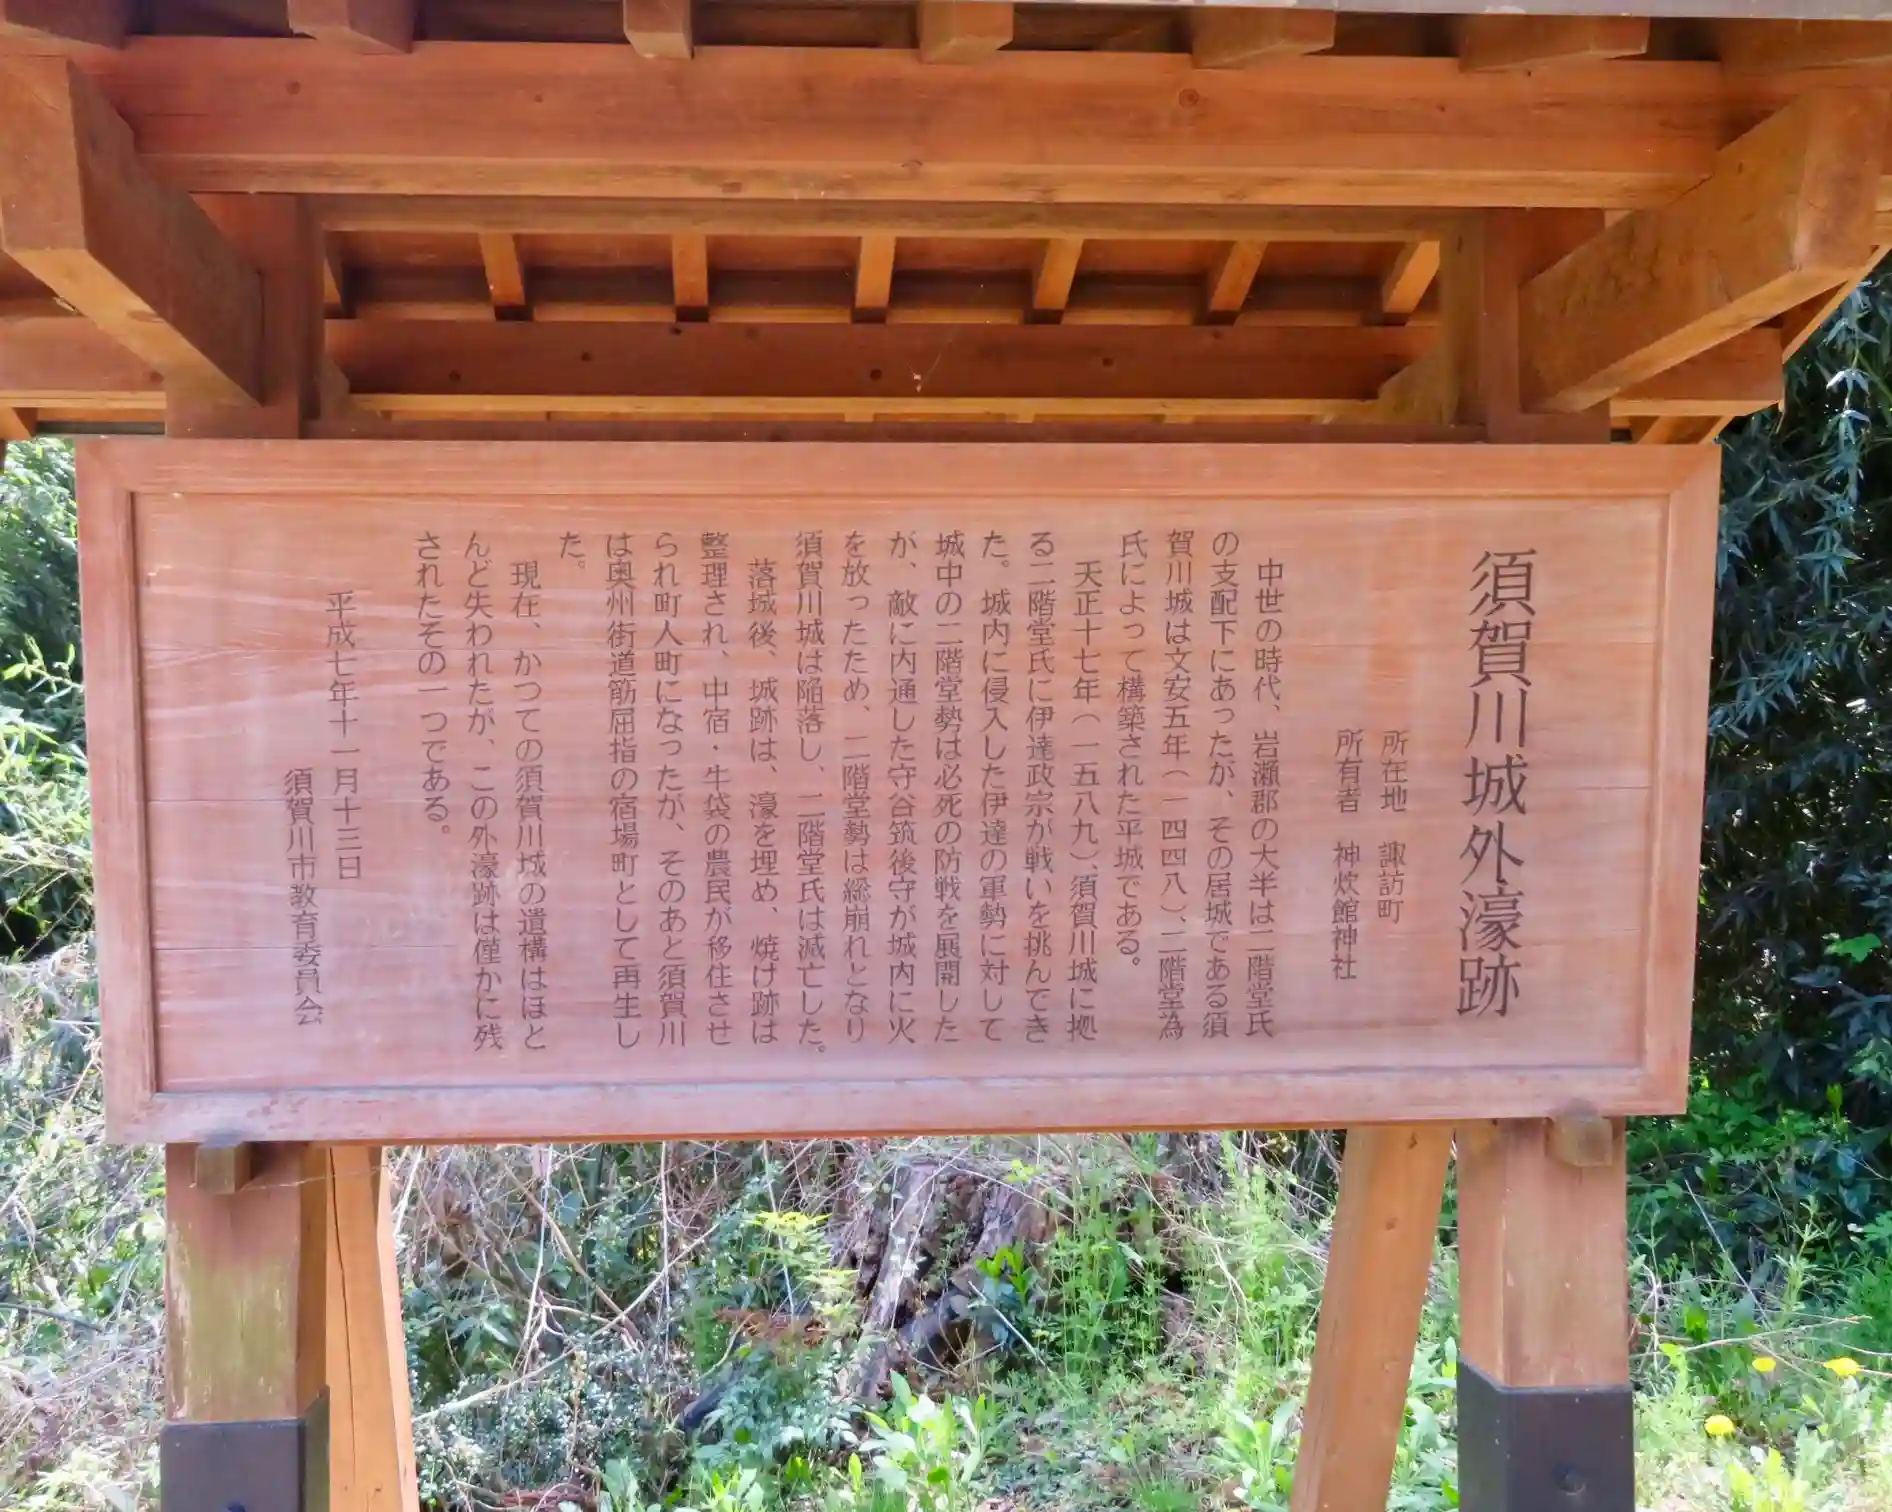 須賀川城外濠跡
所在地　諏訪町
所有者　神炊館神社
中世の時代、岩瀬郡の大半は二階堂氏
の支配下にあったが、その居城である須
賀川城は文安五年(一四四八)、二階堂為
氏によって構築された平城である。
天正十七年(一五八九)、須賀川城に拠
る二階堂氏に伊達政宗が戦いを挑んでき
た。城内に侵入した伊達の軍勢に対して
城中の二階堂勢は必死の防戦を展開した
が、敵に内通した守谷筑後守が城内に火
を放ったため、二階堂勢は総崩れとなり
須賀川城は陥落し、二階堂氏は滅亡した。
落城後、城跡は、濠を埋め、焼け跡は
整理され、中宿・牛袋の農民が移住させ
られ町人町になったが、そのあと須賀川
は奥州街道筋屈指の宿場町として再生し
た。
現在、かつての須賀川城の遺構はほと
んど失われたが、この外濠跡は僅かに残
されたその一つである。
平成七年十一月十三日
須賀川市教育委員会